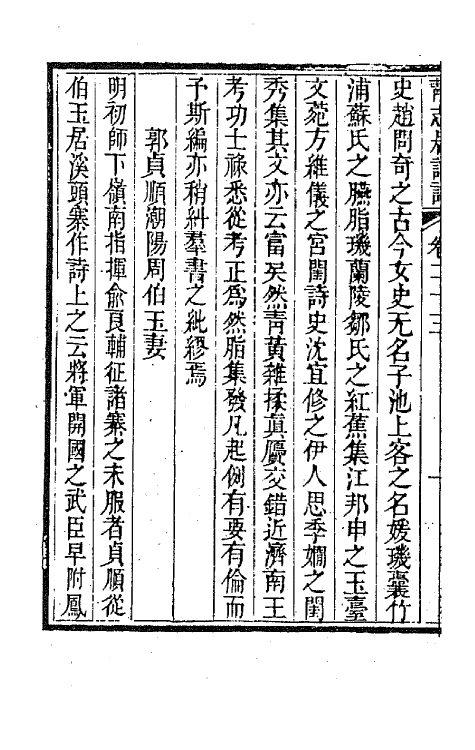 史趙問奇之古今女史无名子池上客之名媛璣囊竹
浦蘇氏之臙脂璣蘭陵鄒氏之紅蕉集江邦申之玉臺
文菀方維儀之宮閨詩史沈宜修之伊人思季嫻之閨
秀集其文亦云富矣然靑黃雜揉眞贗交錯近濟南王
考功士祿悉從考正爲然脂集發凡起例有要有倫而
予斯編亦稍糾羣書之紕繆焉
郭貞順潮陽周伯玉妻
明初師下嶺南指揮俞良輔征諸寨之未服者貞順從
伯玉居溪頭寨作詩上之云將軍開國之武臣早附鳳